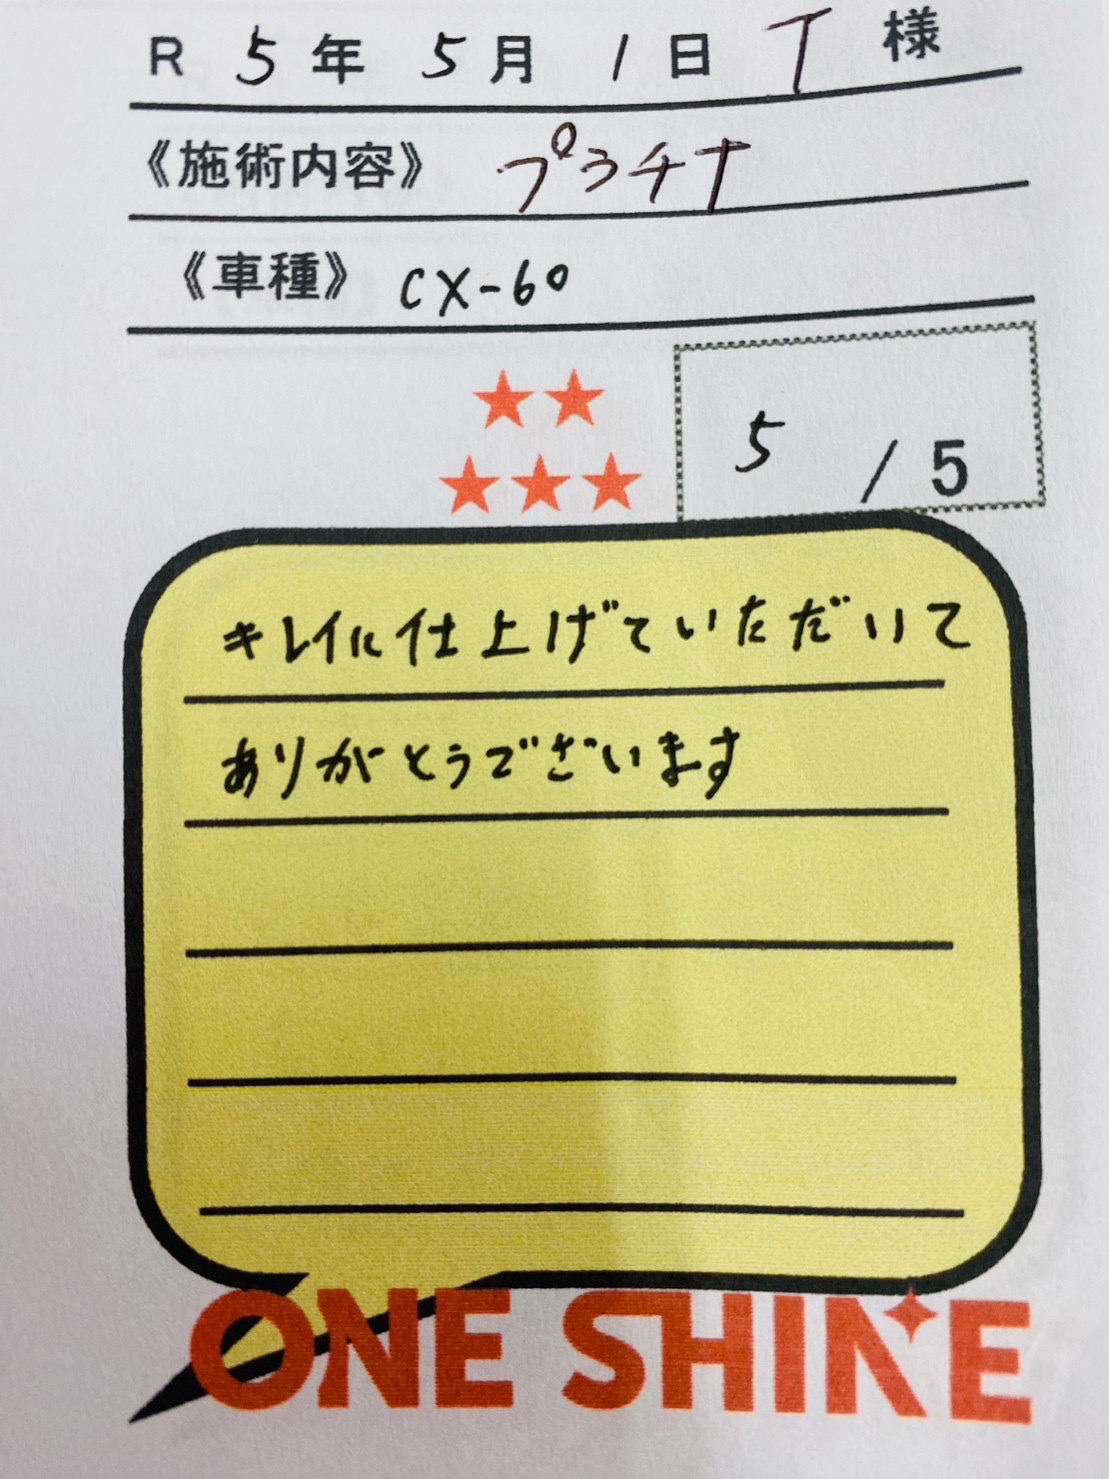 R 5年 5月 1日 T 様
《施術内容》 プラチナ
《車種》 CX-60
5 / 5
キレイに仕上げていただいて
ありがとうございます
ONE SHINE